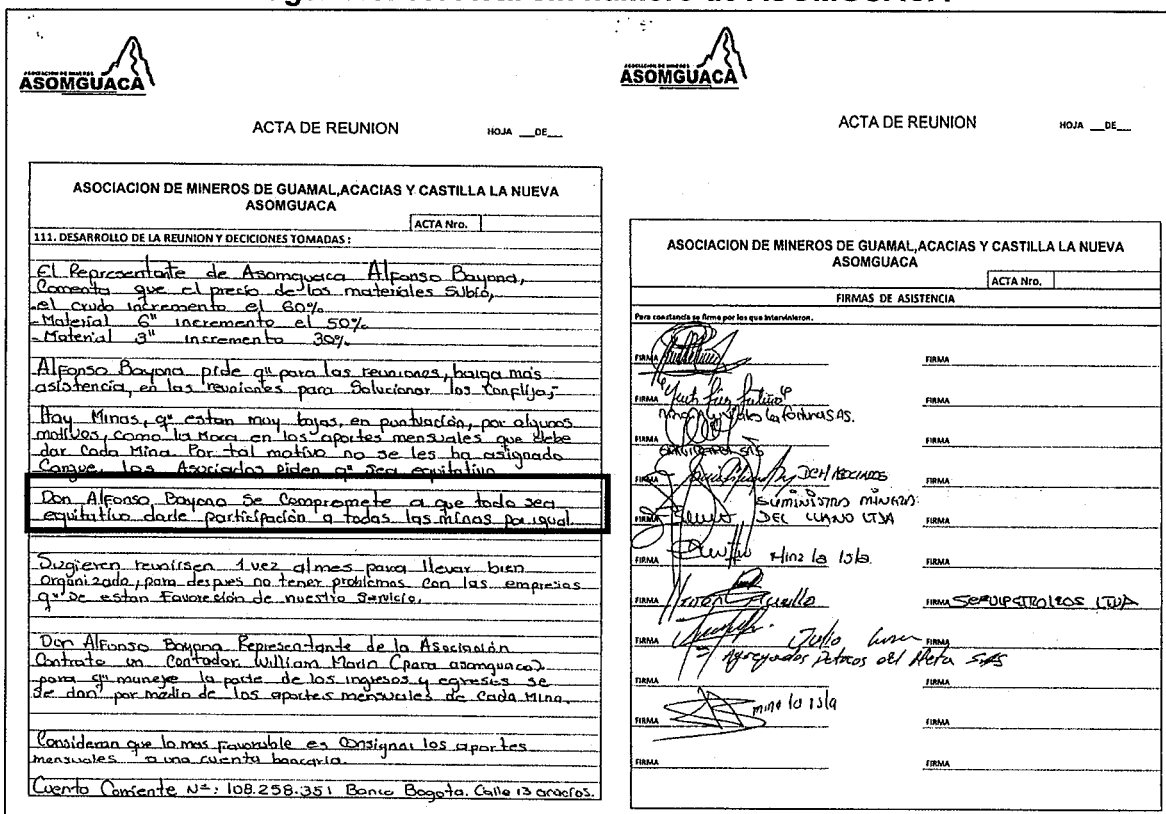 ASOCIACION DE MINEROS
ASOMGUACA
ACTA DE REUNION
HOJA __DE__
ASOCIACION DE MINEROS DE GUAMAL,ACACIAS Y CASTILLA LA NUEVA
ASOMGUACA
ACTA Nro.
111. DESARROLLO DE LA REUNION Y DECICIONES TOMADAS :
El Representante de Asomguaca Alfonso Bayona,
Comenta que el precio de los materiales Subio,
-el crudo incremento el 60%
-Material 6" incremento el 50%
-Material 3" incremento 30%
Alfonso Bayona pide qu para las reuniones, haiga mas
asistencia, en las reuniones para Solucionar los
Hay Minas, qe estan muy bajas, en puntuación, por algunos
motivos, como la Mora en los aportes mensuales que debe
dar Cada Mina. Por tal motivo no se les ha asignado
Cargue, los Asociados piden qe sea equitativo
Don Alfonso Bayona Se Compromete a que todo sea
equitativo darle participación a todas las minas por igual
Sugieren reunirsen 1 vez al mes para llevar bien
Organizado, para despues no tener problemas con las empresas
qe se estan de nuestro Servicio.
Don Alfonso Bayona Representante de la Asociación
Contrato un Contador William Marin (para asomguaca)
para qu maneje la parte de los ingresos y egresos se
se dan por medio de los aportes mensuales de Cada Mina.
Consideran que lo mas favorable es Consignar los aportes
mensuales a una cuenta bancaria.
Cuenta Corriente Nº: 108.258.351 Banco Bogota. Calle 13 acacias.
ASOCIACION DE MINEROS
ASOMGUACA
ACTA DE REUNION
HOJA __DE__
ASOCIACION DE MINEROS DE GUAMAL,ACACIAS Y CASTILLA LA NUEVA
ASOMGUACA
ACTA Nro.
FIRMAS DE ASISTENCIA
Para constancia se firma por los que intervinieron.
FIRMA FIRMA
FIRMA FIRMA
la fortuna SAS.
FIRMA FIRMA
FIRMA DCH ASOCIADOS FIRMA
SUMINISTROS MINEROS
FIRMA DEL LLANO LTDA FIRMA
FIRMA Mina la Isla. FIRMA
FIRMA FIRMA SERVIPETROLEOS LTDA
FIRMA Julio FIRMA
Agregados Petreos del Meta SAS
FIRMA FIRMA
FIRMA mina la isla FIRMA
FIRMA FIRMA